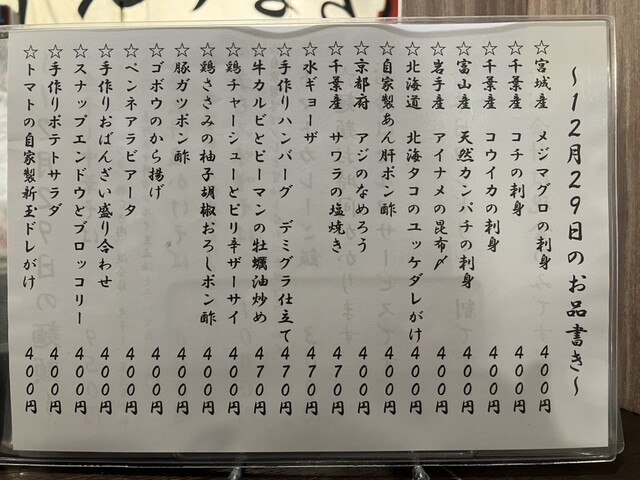 ～12月29日のお品書き～
☆宮城産 メジマグロの刺身 400円
☆千葉産 コチの刺身 400円
☆千葉産 コウイカの刺身 400円
☆富山産 天然カンパチの刺身 400円
☆岩手産 アイナメの昆布〆 400円
☆北海道 北海タコのユッケダレがけ 400円
☆自家製あん肝ポン酢 400円
☆京都府 アジのなめろう 400円
☆千葉産 サワラの塩焼き 470円
☆水ギョーザ 470円
☆手作りハンバーグ デミグラ仕立て 470円
☆牛カルビとピーマンの牡蠣油炒め 470円
☆鶏チャーシューとピリ辛ザーサイ 400円
☆鶏ささみの柚子胡椒おろしポン酢 400円
☆豚ガツポン酢 400円
☆ゴボウのから揚げ 400円
☆ペンネアラビアータ 400円
☆手作りおばんざい盛り合わせ 400円
☆スナップエンドウとブロッコリー 400円
☆手作りポテトサラダ 400円
☆トマトの自家製新玉ドレがけ 400円